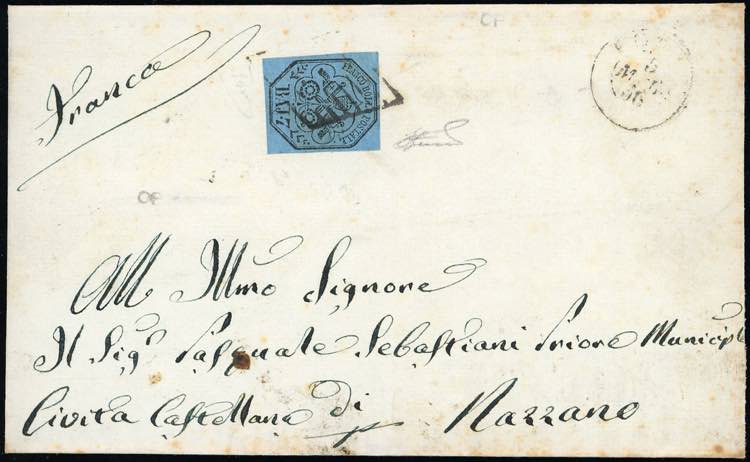 CF
Franca
FRANCO BOLLO POSTALE
BAJ. 7
CF
All Illmo Signore
Il Sigr Pasquale Sebastiani Priore Municiple
Civita Castellana di Nazzano